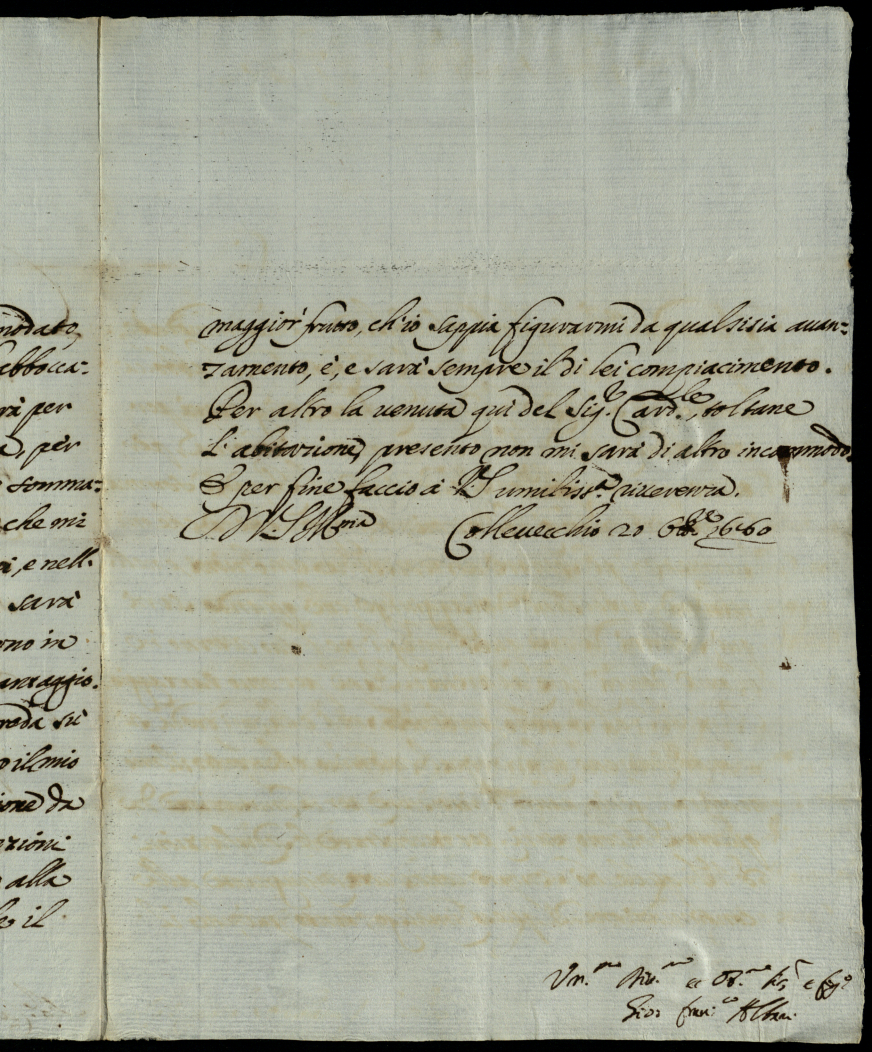 modato,
abbocca=
rà per
a, per
somma=
che mi
i, e nell'
sarà
ono in
antaggio.
reda sù
o il mio
ione da
azioni
alla
il
maggior frutto, ch'io sappia figurarmi da qualsisia auan=
zamento, è, e sarà sempre il di lei compiacimento.
Per altro la uenuta quì del Sig.r Card.le, toltane
l'abitazione, presento non mi sarà di altro incommodo.
E per fine faccio à V.S. umiliss.a riuerenza.
D. V.S. Ill.ma Colleuecchio 20 6660
Vm.mo Diu.mo et Ob.mo e
Gio: fran.co Albani